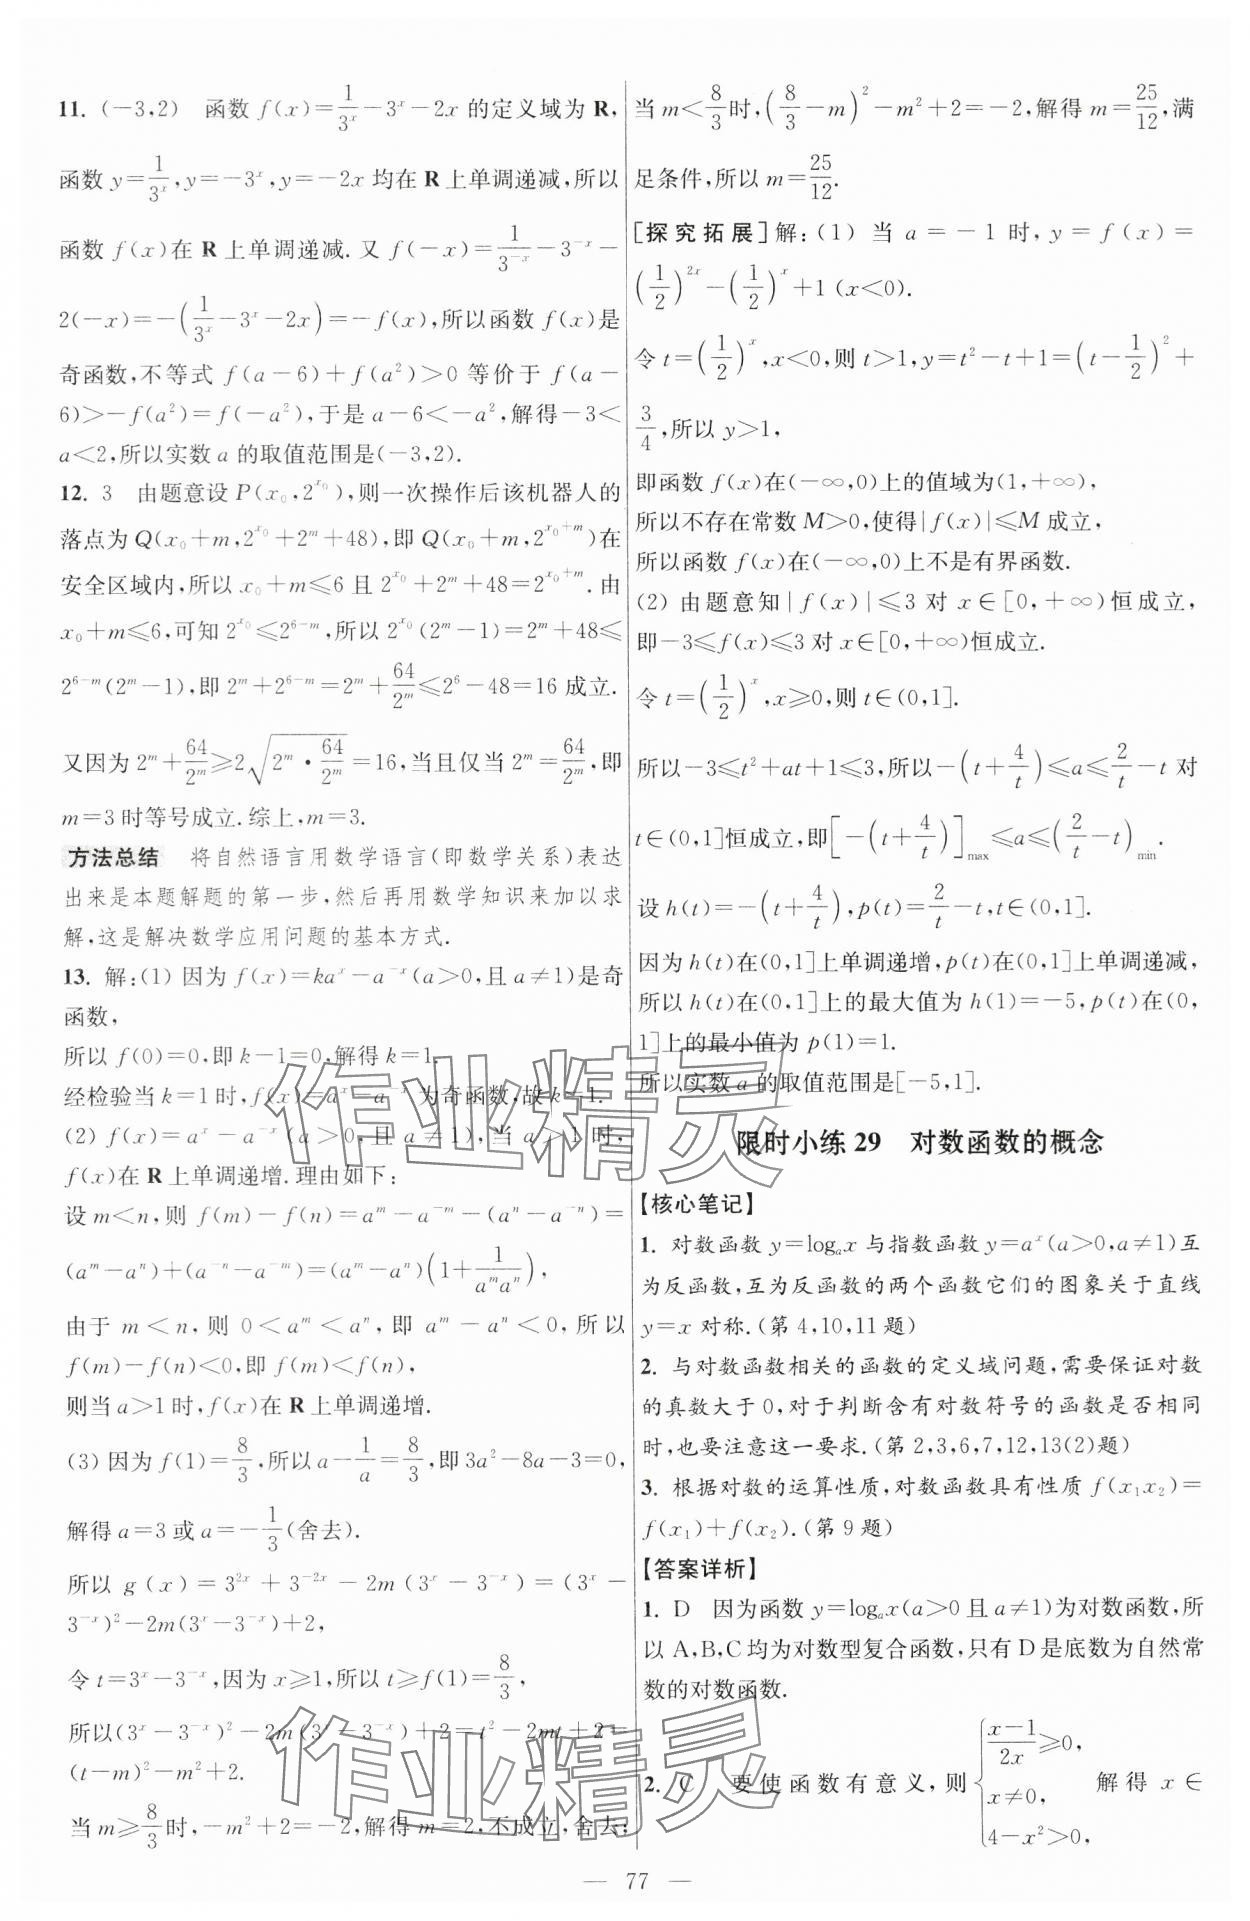 11. (－3,2)　函数 f(x)=1/3^x－3^x－2x 的定义域为 R,
函数 y=1/3^x,y=－3^x,y=－2x 均在 R 上单调递减,所以
函数 f(x)在 R 上单调递减.又 f(－x)=1/3^{－x}－3^{－x}－
2(－x)=－(1/3^x－3^x－2x)=－f(x),所以函数 f(x)是
奇函数,不等式 f(a－6)+f(a²)>0 等价于 f(a－
6)>－f(a²)=f(－a²),于是 a－6<－a²,解得－3<
a<2,所以实数 a 的取值范围是(－3,2).
12. 3　由题意设 P(x₀,2^{x₀}),则一次操作后该机器人的
落点为 Q(x₀+m,2^{x₀}+2^m+48),即 Q(x₀+m,2^{x₀+m})在
安全区域内,所以 x₀+m≤6 且 2^{x₀}+2^m+48=2^{x₀+m}.由
x₀+m≤6,可知 2^{x₀}≤2^{6－m},所以 2^{x₀}(2^m－1)=2^m+48≤
2^{6－m}(2^m－1),即 2^m+2^{6－m}=2^m+64/2^m≤2⁶－48=16 成立.
又因为 2^m+64/2^m≥2√(2^m·64/2^m)=16,当且仅当 2^m=64/2^m,即
m=3 时等号成立.综上,m=3.
方法总结　将自然语言用数学语言(即数学关系)表达
出来是本题解题的第一步,然后再用数学知识来加以求
解,这是解决数学应用问题的基本方式.
13. 解:(1) 因为 f(x)=ka^x－a^{－x}(a>0,且 a≠1)是奇
函数,
所以 f(0)=0,即 k－1=0,解得 k=1.
经检验当 k=1 时,f(x)=a^x－a^{－x} 为奇函数,故 k=1.
(2) f(x)=a^x－a^{－x}(a>0,且 a≠1),当 a>1 时,
f(x)在 R 上单调递增.理由如下:
设 m<n,则 f(m)－f(n)=a^m－a^{－m}－(a^n－a^{－n})=
(a^m－a^n)+(a^{－n}－a^{－m})=(a^m－a^n)(1+1/(a^m a^n)),
由于 m<n,则 0<a^m<a^n,即 a^m－a^n<0,所以
f(m)－f(n)<0,即 f(m)<f(n),
则当 a>1 时,f(x)在 R 上单调递增.
(3) 因为 f(1)=8/3,所以 a－1/a=8/3,即 3a²－8a－3=0,
解得 a=3 或 a=－1/3(舍去).
所以 g(x)=3^{2x}+3^{－2x}－2m(3^x－3^{－x})=(3^x－
3^{－x})²－2m(3^x－3^{－x})+2,
令 t=3^x－3^{－x},因为 x≥1,所以 t≥f(1)=8/3,
所以(3^x－3^{－x})²－2m(3^x－3^{－x})+2=t²－2mt+2=
(t－m)²－m²+2.
当 m≥8/3时,－m²+2=－2,解得 m=2,不成立,舍去;
当 m<8/3时,(8/3－m)²－m²+2=－2,解得 m=25/12,满
足条件,所以 m=25/12.
[探究拓展]解:(1) 当 a=－1 时,y=f(x)=
(1/2)^{2x}－(1/2)^x+1 (x<0).
令 t=(1/2)^x,x<0,则 t>1,y=t²－t+1=(t－1/2)²+
3/4,所以 y>1,
即函数 f(x)在(－∞,0)上的值域为(1,+∞),
所以不存在常数 M>0,使得|f(x)|≤M 成立,
所以函数 f(x)在(－∞,0)上不是有界函数.
(2) 由题意知|f(x)|≤3 对 x∈[0,+∞)恒成立,
即－3≤f(x)≤3 对 x∈[0,+∞)恒成立.
令 t=(1/2)^x,x≥0,则 t∈(0,1].
所以－3≤t²+at+1≤3,所以－(t+4/t)≤a≤2/t－t 对
t∈(0,1]恒成立,即[－(t+4/t)]max≤a≤(2/t－t)min.
设 h(t)=－(t+4/t),p(t)=2/t－t,t∈(0,1].
因为 h(t)在(0,1]上单调递增,p(t)在(0,1]上单调递减,
所以 h(t)在(0,1]上的最大值为 h(1)=－5,p(t)在(0,
1]上的最小值为 p(1)=1.
所以实数 a 的取值范围是[－5,1].
限时小练 29　对数函数的概念
【核心笔记】
1. 对数函数 y=logₐx 与指数函数 y=a^x(a>0,a≠1)互
为反函数,互为反函数的两个函数它们的图象关于直线
y=x 对称.(第 4,10,11 题)
2. 与对数函数相关的函数的定义域问题,需要保证对数
的真数大于 0,对于判断含有对数符号的函数是否相同
时,也要注意这一要求.(第 2,3,6,7,12,13(2)题)
3. 根据对数的运算性质,对数函数具有性质 f(x₁x₂)=
f(x₁)+f(x₂).(第 9 题)
【答案详析】
1. D　因为函数 y=logₐx(a>0 且 a≠1)为对数函数,所
以 A,B,C 均为对数型复合函数,只有 D 是底数为自然常
数的对数函数.
2. C　要使函数有意义,则{(x－1)/2x≥0, x≠0, 4－x²>0, 解得 x∈
— 77 —
作业精灵
作业精灵